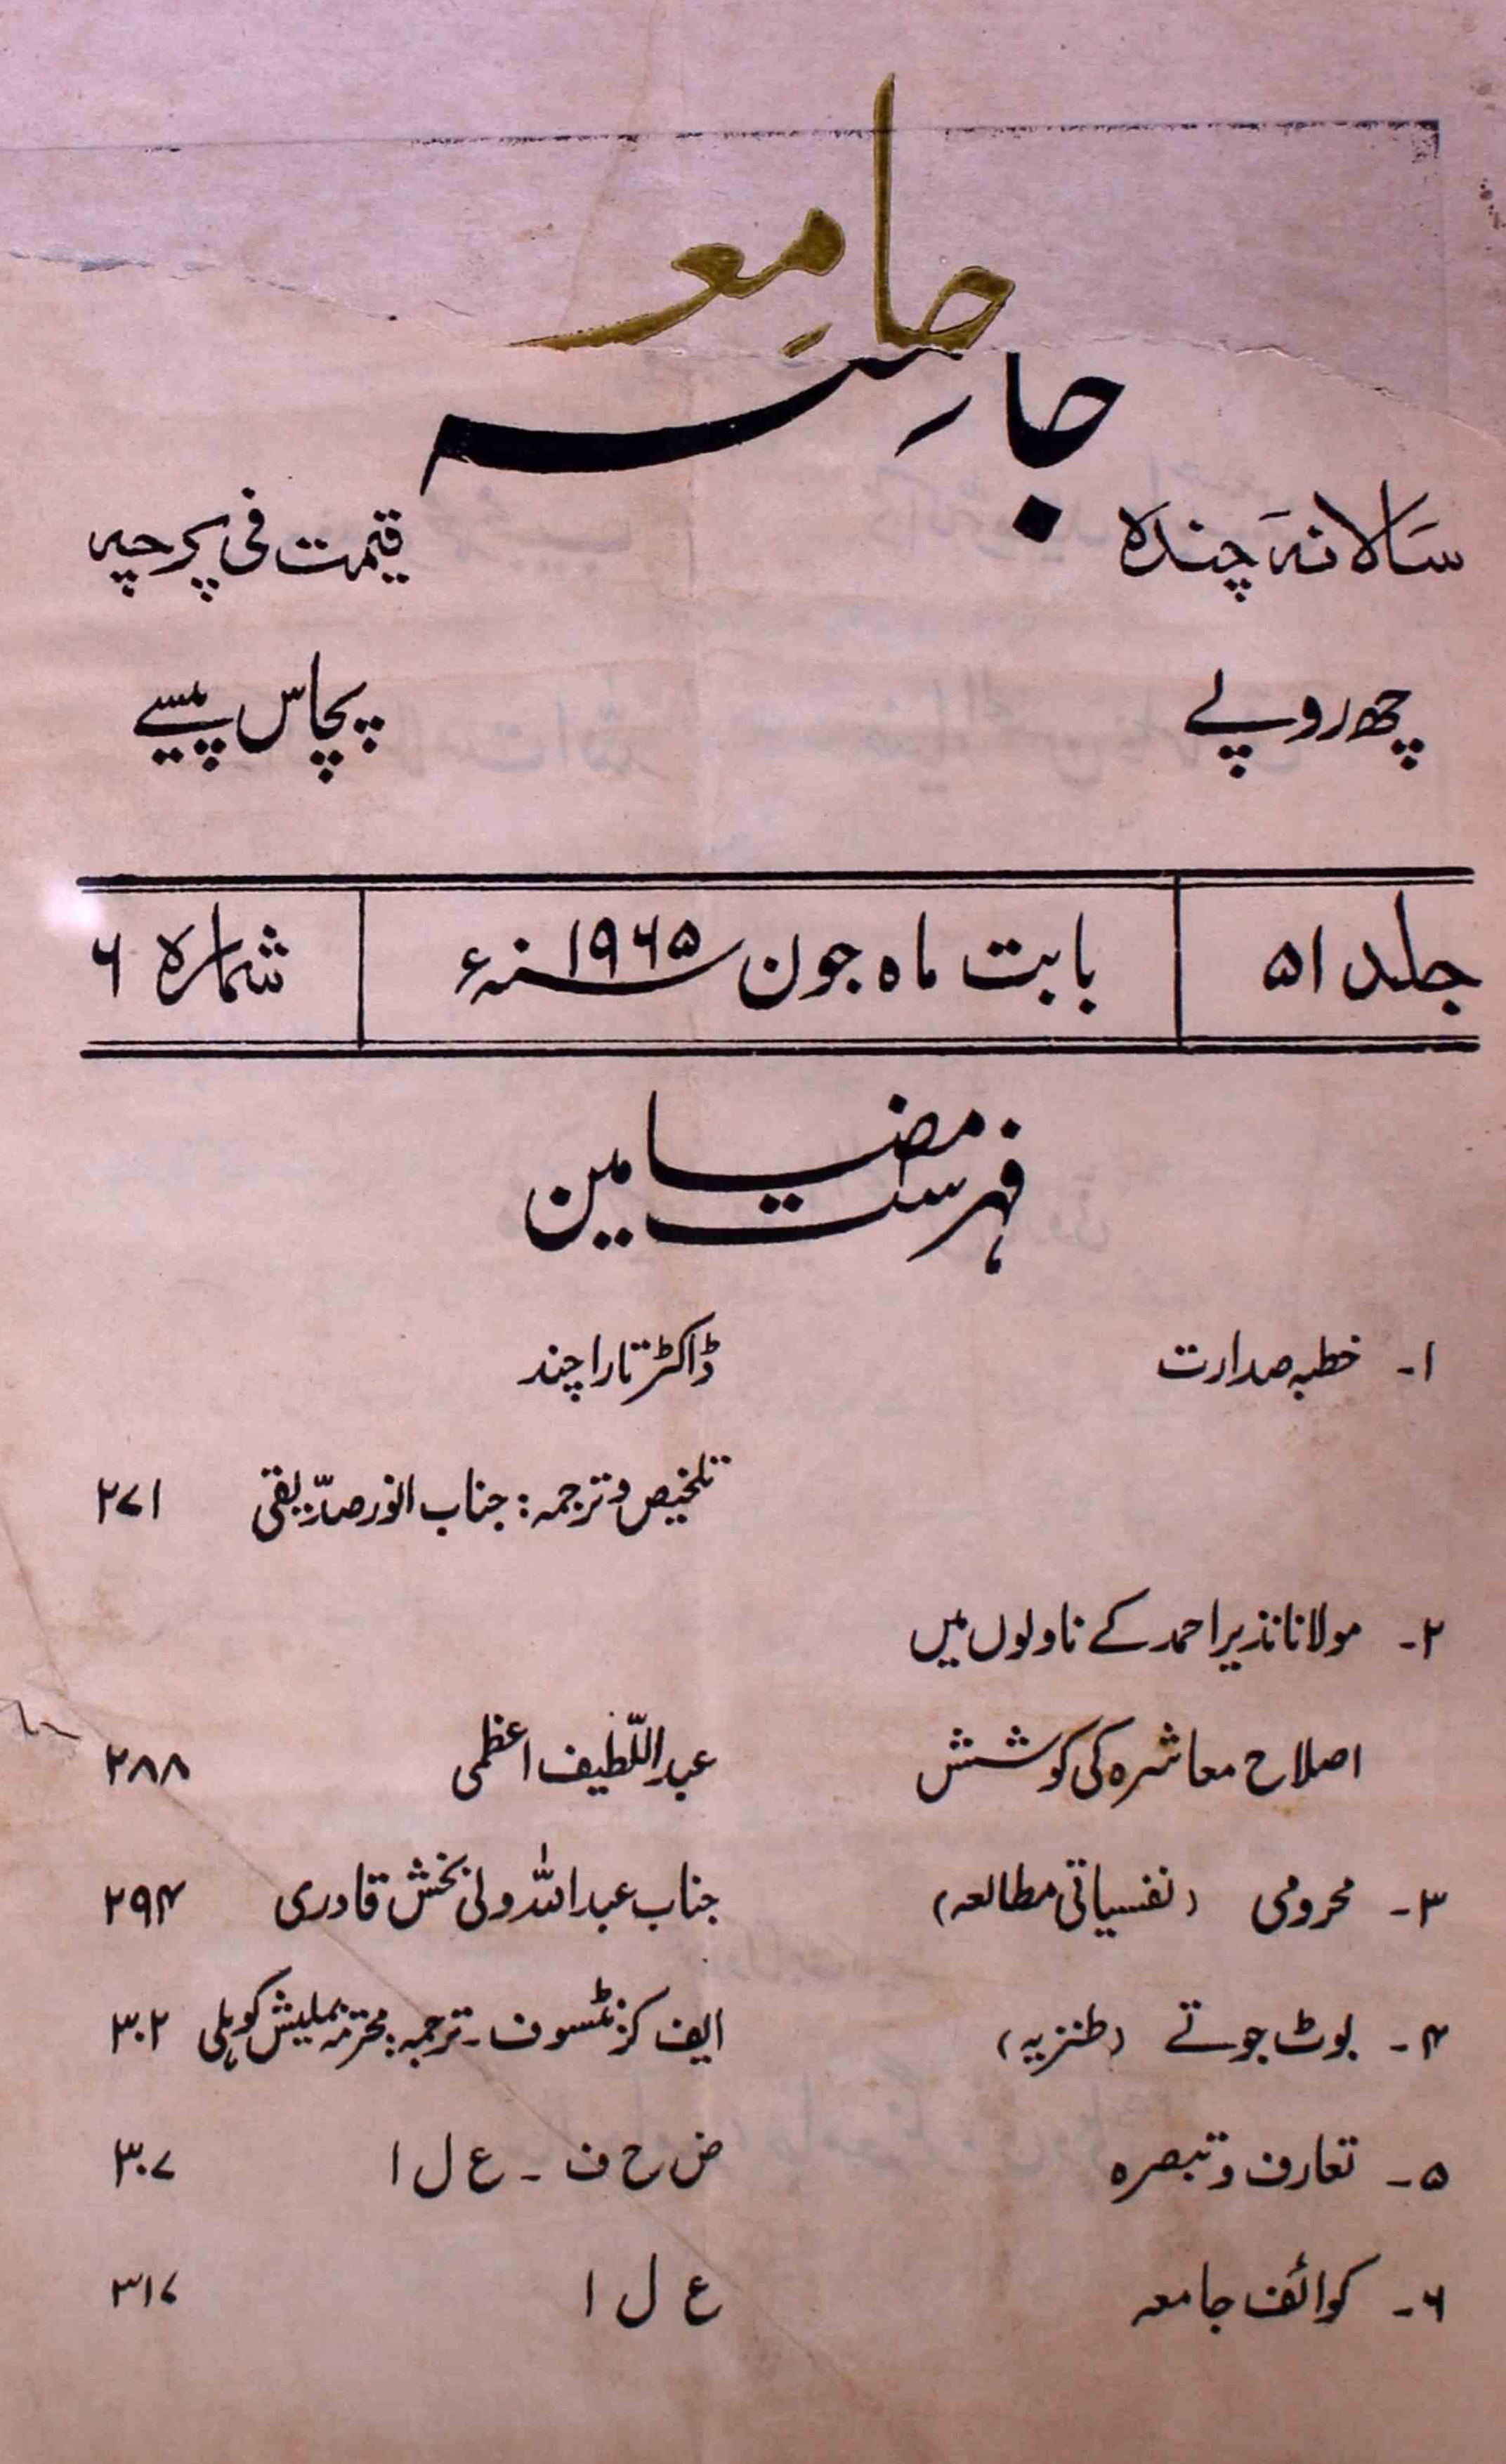 جامعہ
سالانہ چندہ
قیمت فی پرچہ
چھ روپے
پچاس پیسے
جلد ۵۱
بابت ماہ جون ۱۹۶۵ء
شمارہ ۶
فہرست مضامین
۱۔ خطبہ صدارت ڈاکٹر تارا چند
تلخیص و ترجمہ: جناب انور صدیقی ۲۷۱
۲۔ مولانا نذیر احمد کے ناولوں میں
اصلاح معاشرہ کی کوشش عبداللّطیف اعظمی ۲۸۸
۳۔ محرومی (نفسیاتی مطالعہ) جناب عبداللہ ولی بخش قادری ۲۹۴
۴۔ بوٹ جوتے (طنزیہ) ایف ترجمہ: محترمہ کوہلی ۳۰۲
۵۔ تعارف و تبصرہ ض ح ف ۔ ع ل ا ۳۰۷
۶۔ کوائف جامعہ ع ل ا ۳۱۷